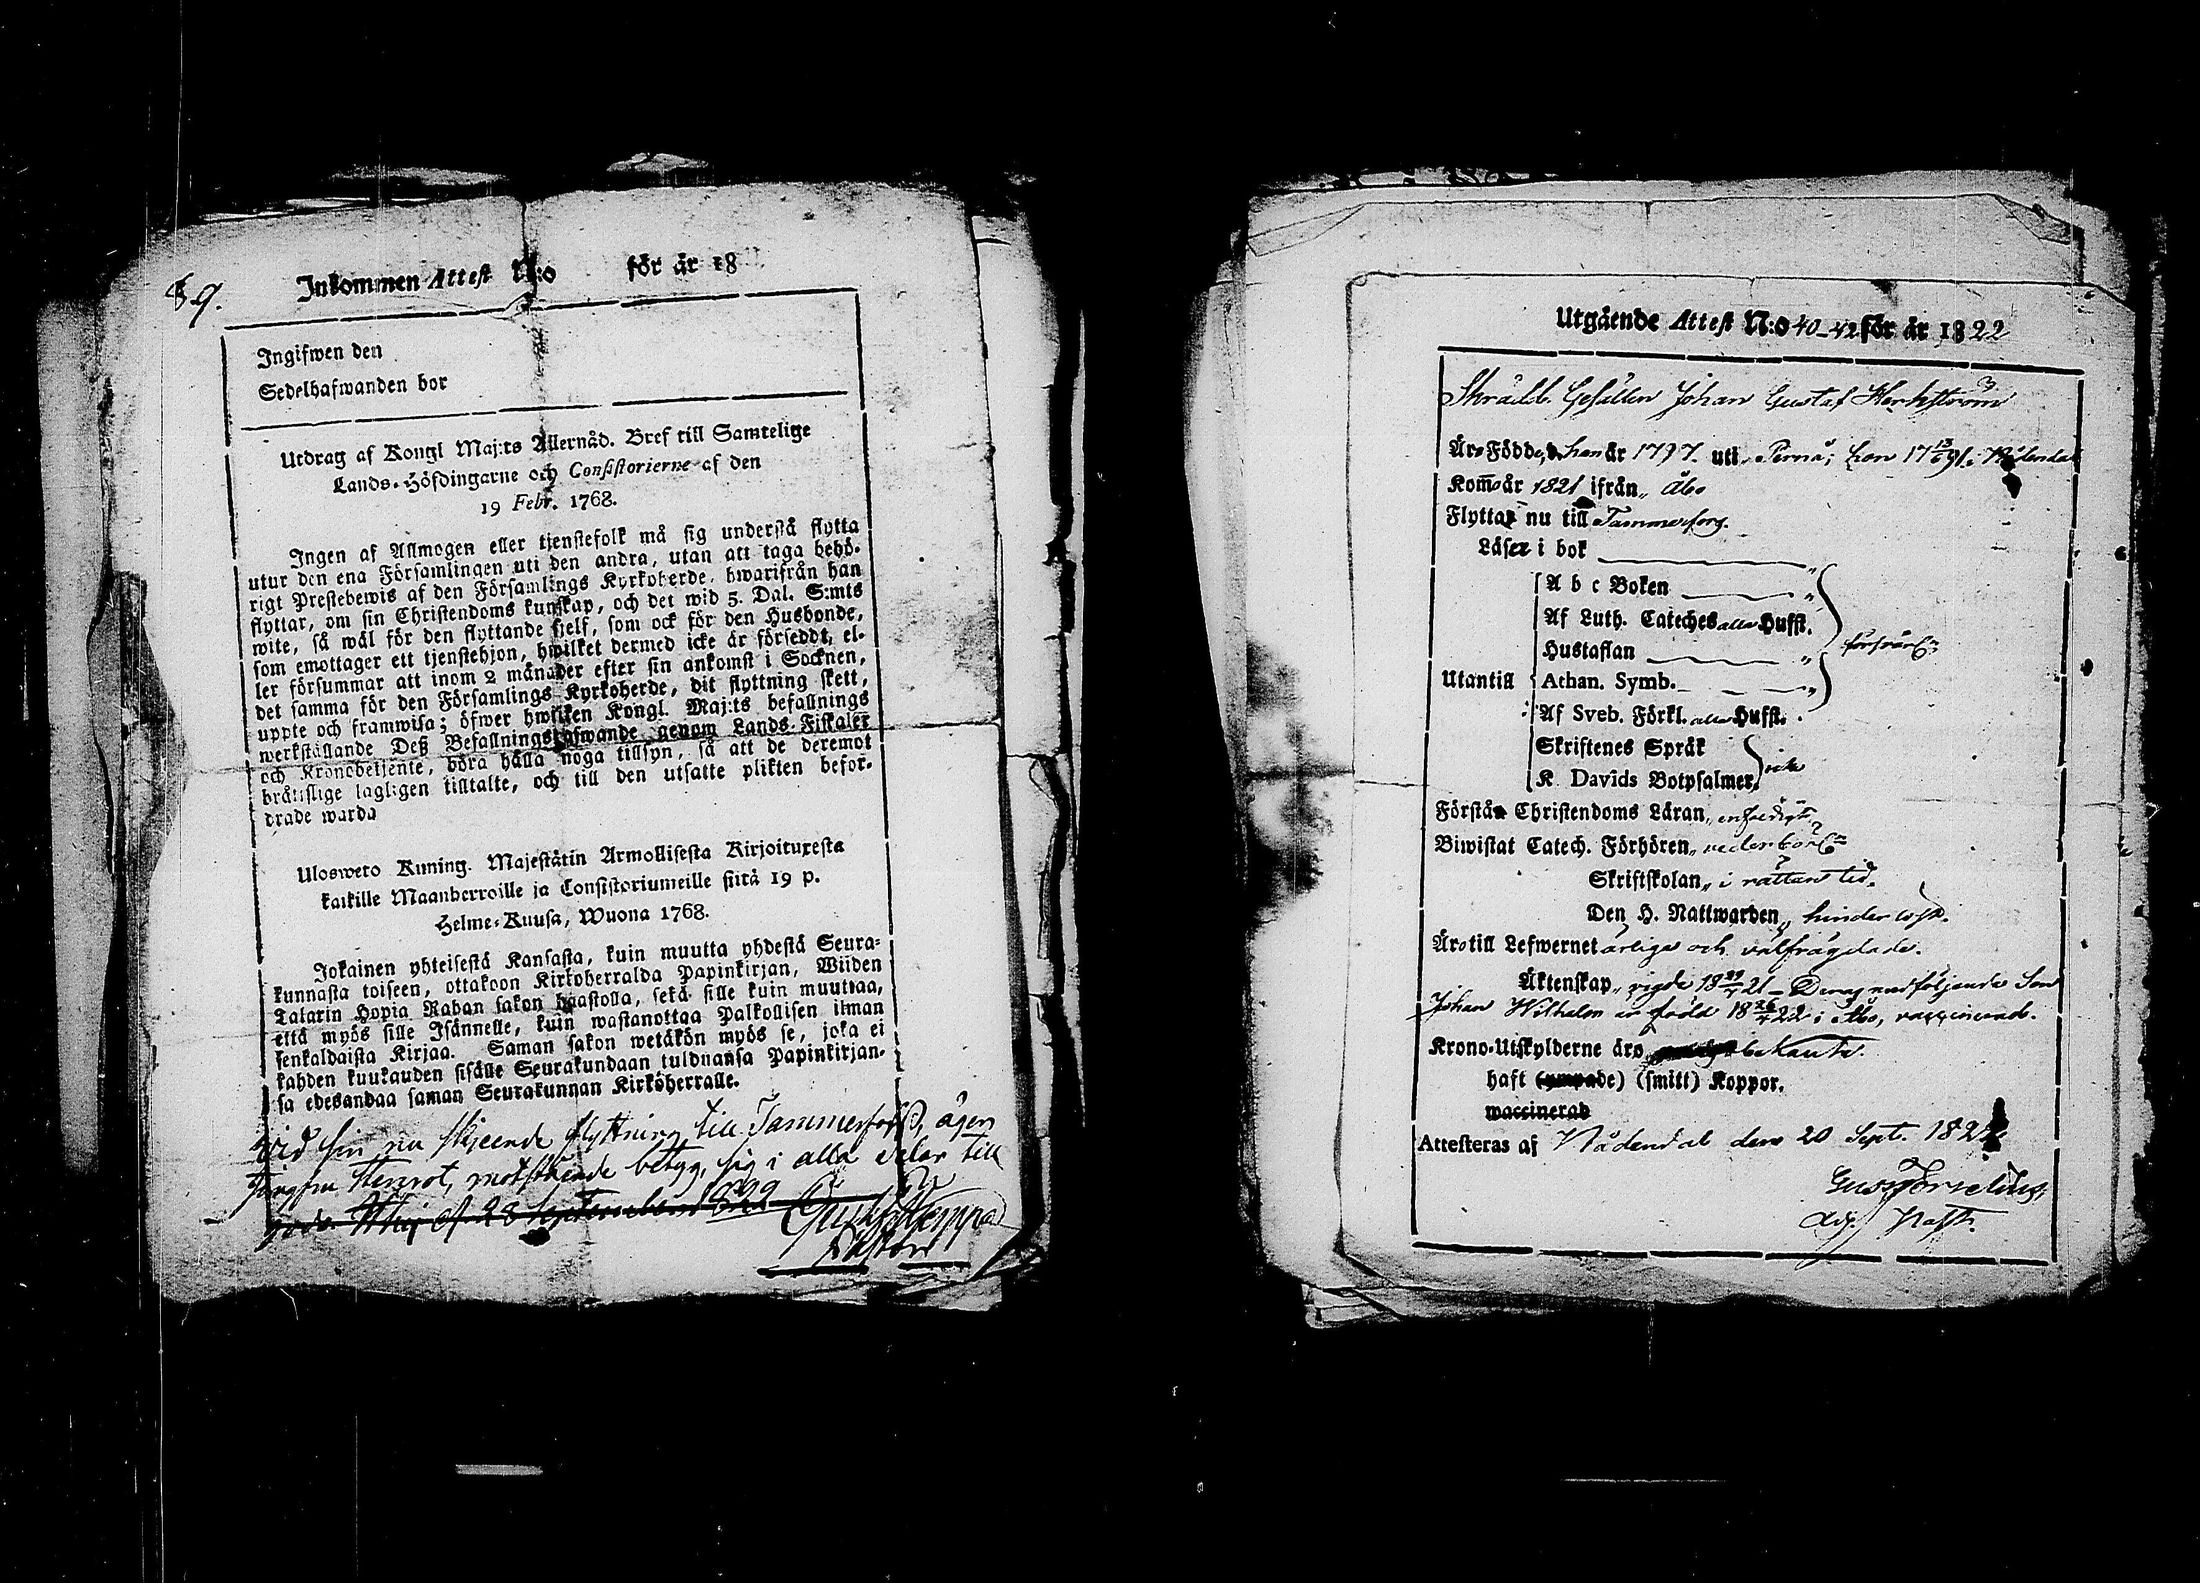 59.
Inkommen Attest N:o för år 18
Ingifwen den
Sedelhafwanden bor
Utdrag af Kongl Maj:ts Allernåd. Bref till Samtelige
Lands-Höfdingarne och Consistorierne af den
19 Febr. 1768.
Ingen af Allmogen eller tjenstefolk må sig understå flytta
utur den ena Församlingen uti den andra, utan att taga behö-
rigt Prestebewis af den Församlings Kyrkoherde, hwarifrån han
flyttar, om sin Christendoms kunskap, och det wid 5. Dal. S:mts
wite, så wäl för den flyttande sielf, som ock för den Husbonde,
som emottager ett tjenstehjon, hwilket dermed icke är försedt, el-
ler försummar att inom 2 månader efter sin ankomst i Socknen,
det samma för den Församlings Kyrkoherde, dit flyttning skett,
uppte och framwisa; öfwer hwilken Kongl. Maj:ts befallnings
werkställande Deß Befallningshafwande genom Lands-Fiskaler
och Kronobetjente, böra hålla noga tillsyn, så att de deremot
bråttslige lagligen tilltalte, och till den utsatte plikten befor-
drade warda
Ulosweto Kuning. Majestätin Armollisesta Kirjoituxesta
kaikille Maanherroille ja Consistoriumeille siitä 19 p.
Helme-Kuusa, Wuona 1768.
Jokainen yhteisestä Kansasta, kuin muutta yhdestä Seura-
kunnasta toiseen, ottakoon Kirkoherralda Papinkirjan, Wiiden
Talarin Hopia Rahan sakon haastolla, sekä sille kuin muuttaa,
että myös sille Isännelle, kuin wastanottaa Palkollisen ilman
senkaldaista Kirjaa. Saman sakon wetäkön myös se, joka ei
kahden kuukauden sisälle Seurakundaan tulduansa Papinkirjan-
sa edesandaa saman Seurakunnan Kirköherralle.
Wid sin nu skjeende flyttning till Tammerforß, ägen
motstående betyg, sig i alla delar till
Gust
Pastor
Utgående Attest N:o 40-42 för år 1822
Skrädd. Gesällen Johan Gustaf
Äro Födde, han år 1797. uti Pernå; hon 17 13/6 91. i Nådendal
Kom̄o år 1821 ifrån Åbo
Flytta nu till Tammerfors.
Läser i bok
A b c Boken
Af Luth. Cateches alla Hufst.
Hustaflan
försvarl:n
Utantill Athan. Symb.
Af Sveb. Förkl. alla Hufst.
Skriftenes Språk
K. Davids Botpsalmer, icke
Förstå Christendoms Läran enfaldigt.
Biwistat Catech. Förhören vederbörl:n
Skriftskolan i rättan tid.
Den H. Nattwarden hinderlöst.
Äro till Lefwernet ärliga och välfrägdade.
Äktenskap vigde 18 21 medföljande Son
Johan Wilhelm är född 18 22 i Åbo, vaccinerad.
Krono-Utskylderne äro bekante.
haft (ympade) (smitt) Koppor.
waccinerad
Attesteras af Nådendal den 20 Sept. 1822
Gust Forselius
Adj. Past.